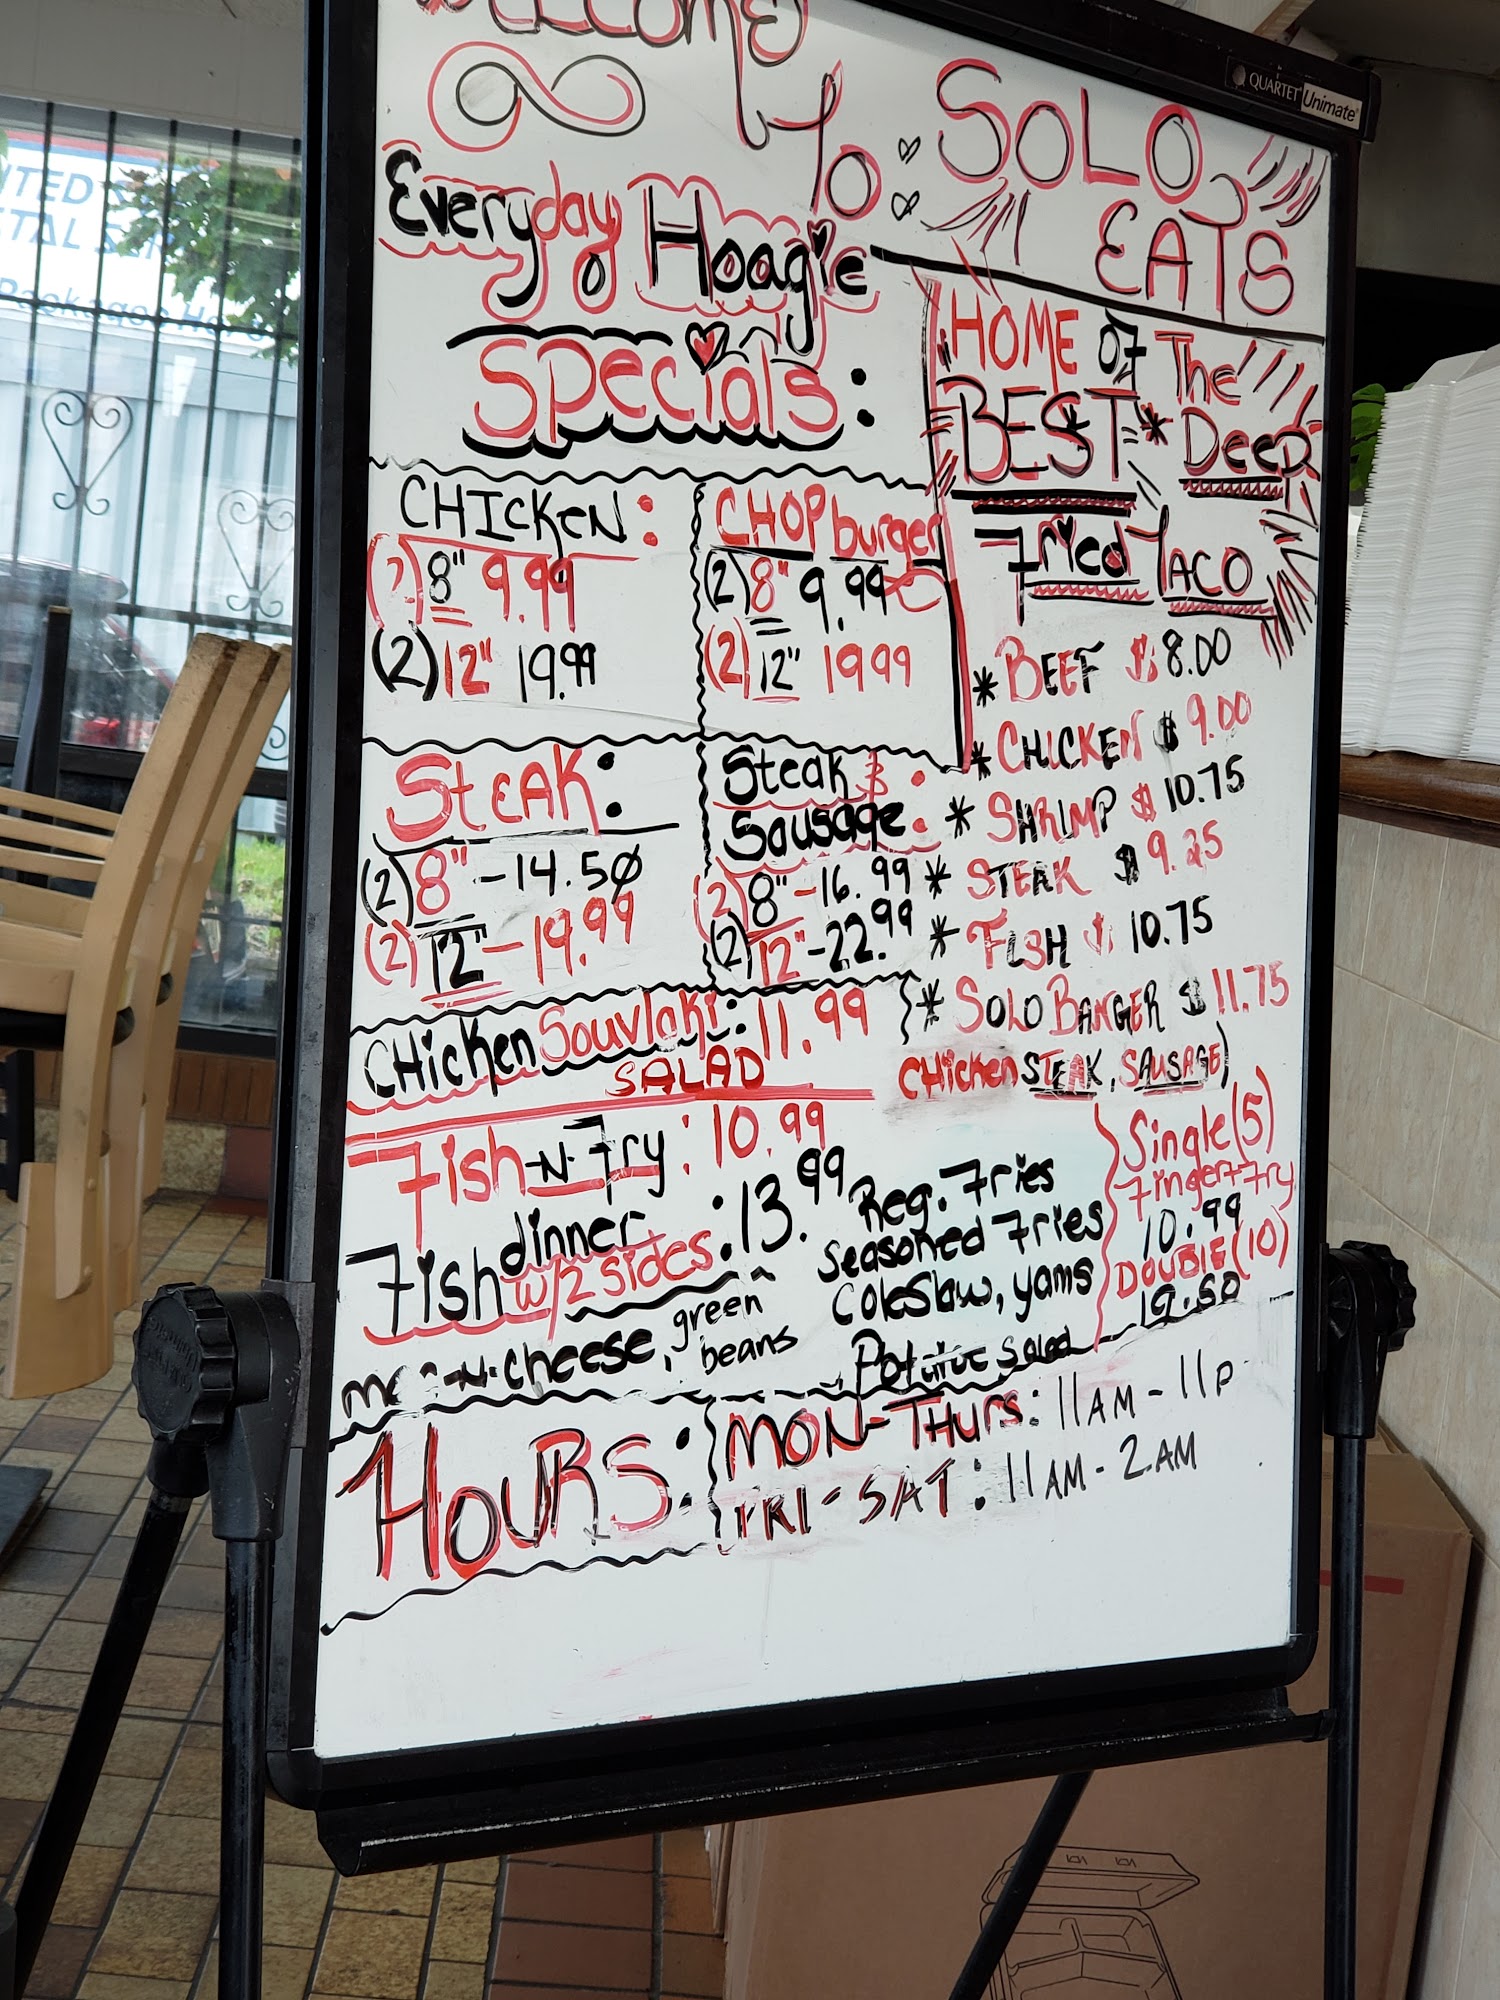 WELCOME
To
SOLO
EATS
QUARTET Unimate
Everyday Hoagie
Specials:
HOME of The
BEST * Deep
Fried TACO
CHICKEN:
(2) 8" 9.99
(2) 12" 19.99
CHOPburger
(2) 8" 9.99
(2) 12" 19 99
STEAK:
(2) 8" - 14.50
(2) 12" - 19.99
Steak &:
Sausage:
(2) 8" - 16.99
(2) 12" - 22.99
* BEEF $ 8.00
* CHICKEN $ 9.00
* SHRIMP $ 10.75
* STEAK $ 9.25
* FISH $ 10.75
* SOLO BANGER $ 11.75
CHicken STEAK, SAUSAGE)
CHicken Souvlaki: 11.99
SALAD
Fish-N-Fry: 10.99
Fish dinner
w/2 sides: 13.99
Reg. Fries
Seasoned Fries
ColeSlaw, yams
Potatoe Salad
-N-cheese, green
beans
Single (5)
Finger Fry
10.99
DOUBLE (10)
19.50
HOURS:
MON-THURS: 11AM - 11P
FRI - SAT: 11AM - 2AM